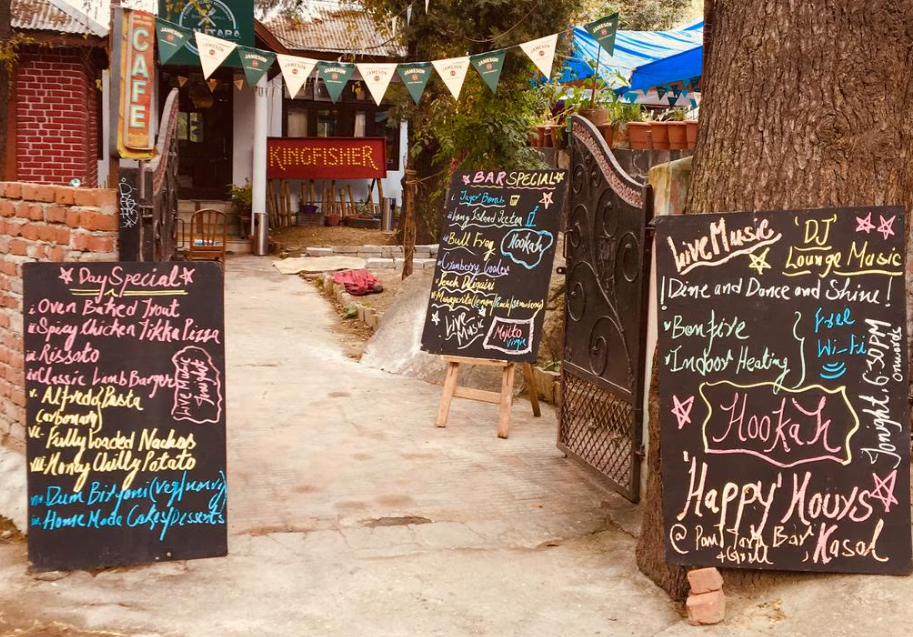 CAFE
JAMESON
JAMESON
JAMESON
JAMESON
JAMESON
JAMESON
JAMESON
JAMESON
JAMESON
JAMESON
KINGFISHER
Day Special
i. Oven Baked Trout
ii. Spicy Chicken Tikka Pizza
iii. Rissoto
iv. Classic Lamb Barger
Live Music
Tonight
v. Alfredo Pasta
(Carbonara)
vi. Fully Loaded Nachos
vii. Honey Chilly Potato
viii. Dum Biryani (veg/nonveg)
ix. Home Made Cakes/Desserts
BAR SPECIAL
Jager Bomb
Long Island Icetea
Bull Frog
Hookah
Cranberry Cooler
Peach
Margarita (lemon/peach/strawberry)
Live
Music
Mojito
Virgin
Live Music
'DJ'
Lounge Music
! Dine and Dance and Shine !
Bonfire
Indoor Heating
free
Wi-fi
Tonight 6:30PM
onwards
Hookah
'Happy' Hours
@ Bar
+Grill
Kasol